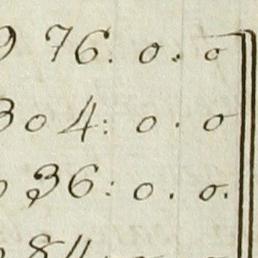 9 76: 0. 0
304: 0. 0
0 36: 0. 0.
84